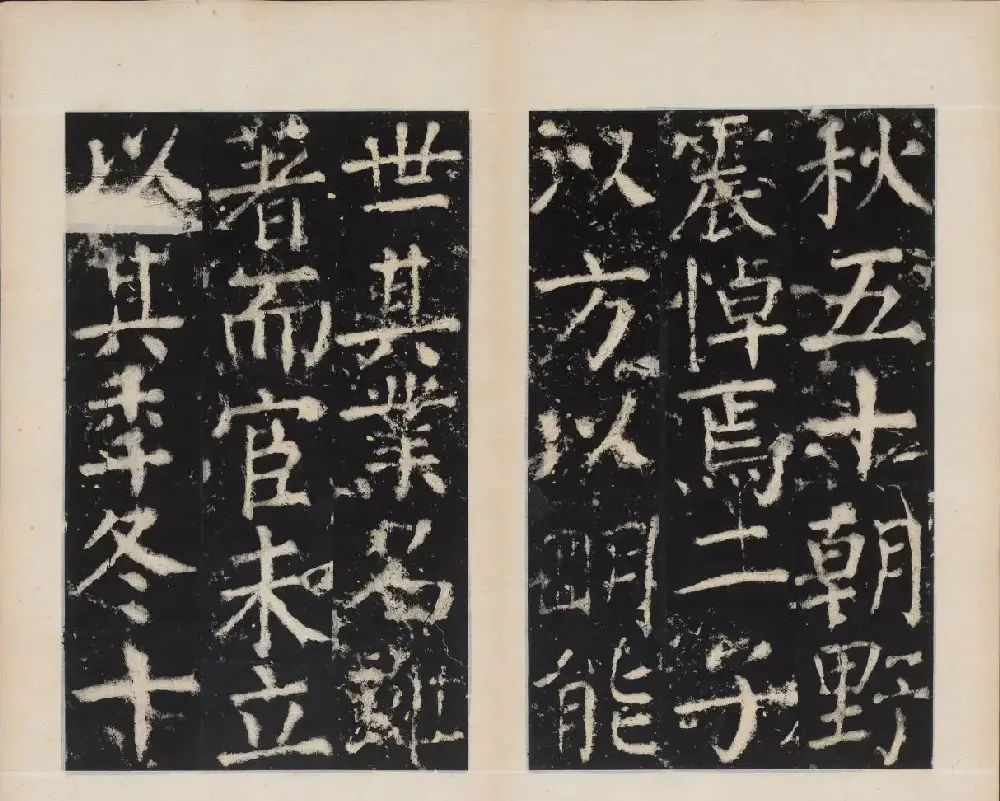 秋五十朝野
震悼焉二子
以方以明能
世其業名雖
著而宦未立
以其秊冬十